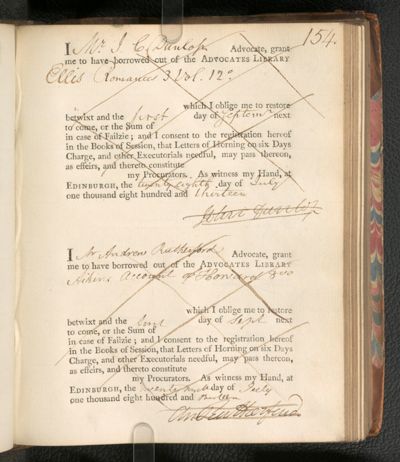 154.
I Mr J. C. Dunlop Advocate, grant
me to have borrowed out of the ADVOCATES LIBRARY
Ellis Romances 3 Vol. 12o
which I oblige me to restore
betwixt and the first day of Septemr next
to come, or the Sum of
in case of Failzie; and I consent to the registration hereof
in the Books of Session, that Letters of Horning on six Days
Charge, and other Executorials needful, may pass thereon,
as effeirs, and thereto constitute
my Procurators. As witness my Hand, at
EDINBURGH, the twenty eighth day of July
one thousand eight hundred and thirteen
John Dunlop
I Mr Andrew Rutherford Advocate, grant
me to have borrowed out of the ADVOCATES LIBRARY
Aikins Account of 8vo
which I oblige me to restore
betwixt and the first day of Sept next
to come, or the Sum of
in case of Failzie; and I consent to the registration hereof
in the Books of Session, that Letters of Horning on six Days
Charge, and other Executorials needful, may pass thereon,
as effeirs, and thereto constitute
my Procurators. As witness my Hand, at
EDINBURGH, the day of July
one thousand eight hundred and thirteen